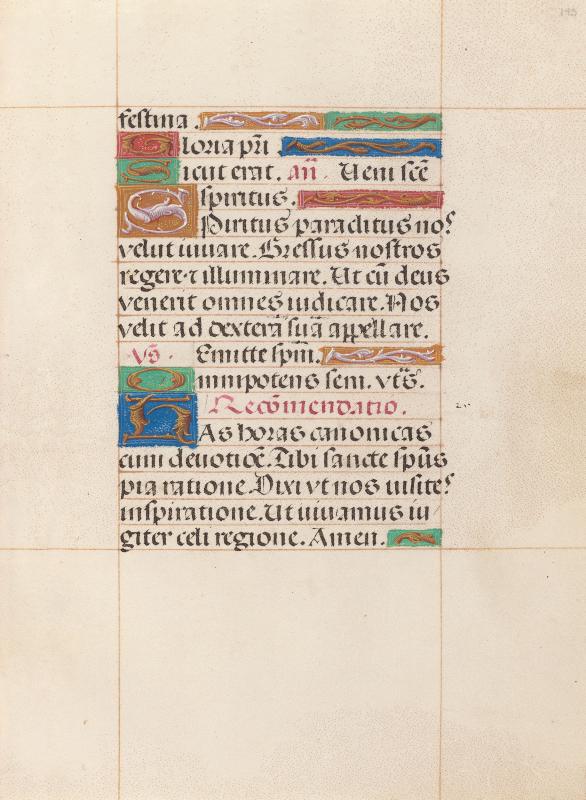 145
festina.
Gloria pr̃i
Sicut erat. añ. Veni scẽ
spiritus.
Spiritus paraclitus no?
velut iuuare. Gressus nostros
regere ⁊ illuminare. Ut cũ deus
venerit omnes iudicare. Nos
velit ad dexterã suã appellare.
Vs̃. Emitte spm̃.
Omnipotens sem. vt s̃.
Recõmendatio.
HAs horas canonicas
cum deuotiõe. Tibi sancte spũs
pia ratione. Dixi vt nos uisites
inspiratione. Ut uiuamus iu
giter celi regione. Amen.